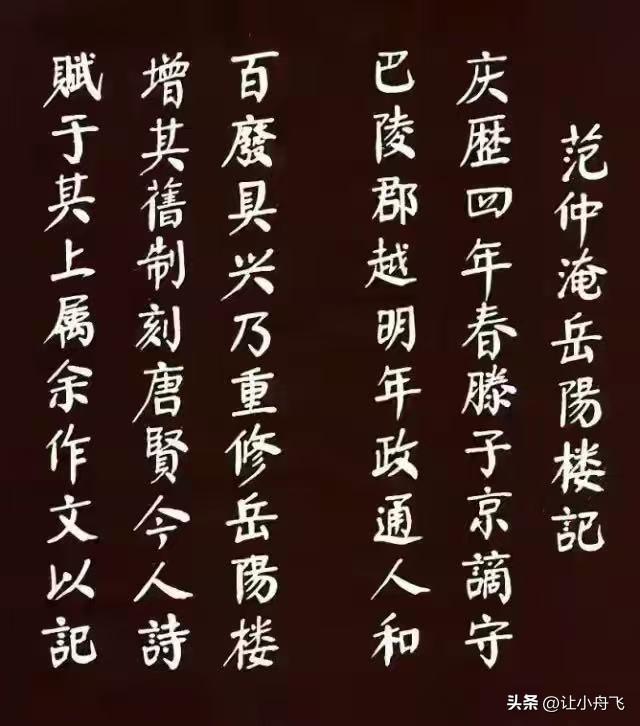 范仲淹岳陽楼記
庆歷四年春滕子京謫守
巴陵郡越明年政通人和
百廢具兴乃重修岳陽楼
增其舊制刻唐賢今人詩
賦于其上属余作文以記
头条 @让小舟飞